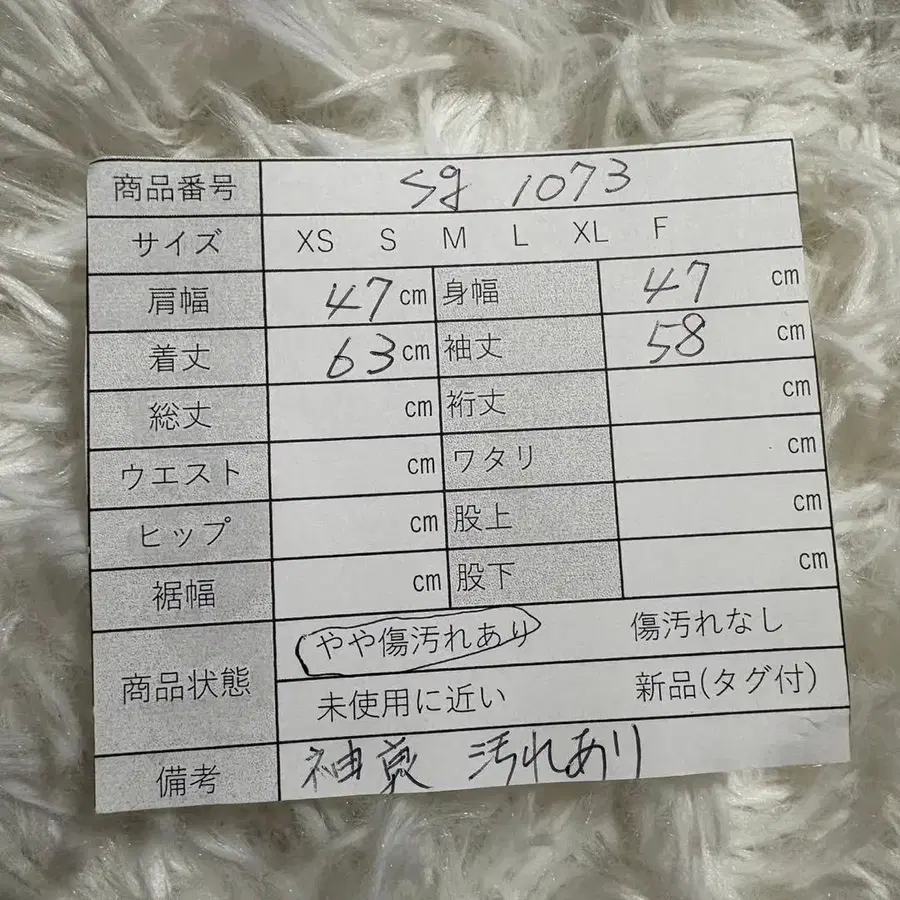 商品番号 sg 1073
サイズ XS S M L XL F
肩幅 47 cm 身幅 47 cm
着丈 63 cm 袖丈 58 cm
総丈 cm 裄丈 cm
ウエスト cm ワタリ cm
ヒップ cm 股上 cm
裾幅 cm 股下 cm
商品状態 やや傷汚れあり 傷汚れなし
未使用に近い 新品(タグ付)
備考 袖裏 汚れあり